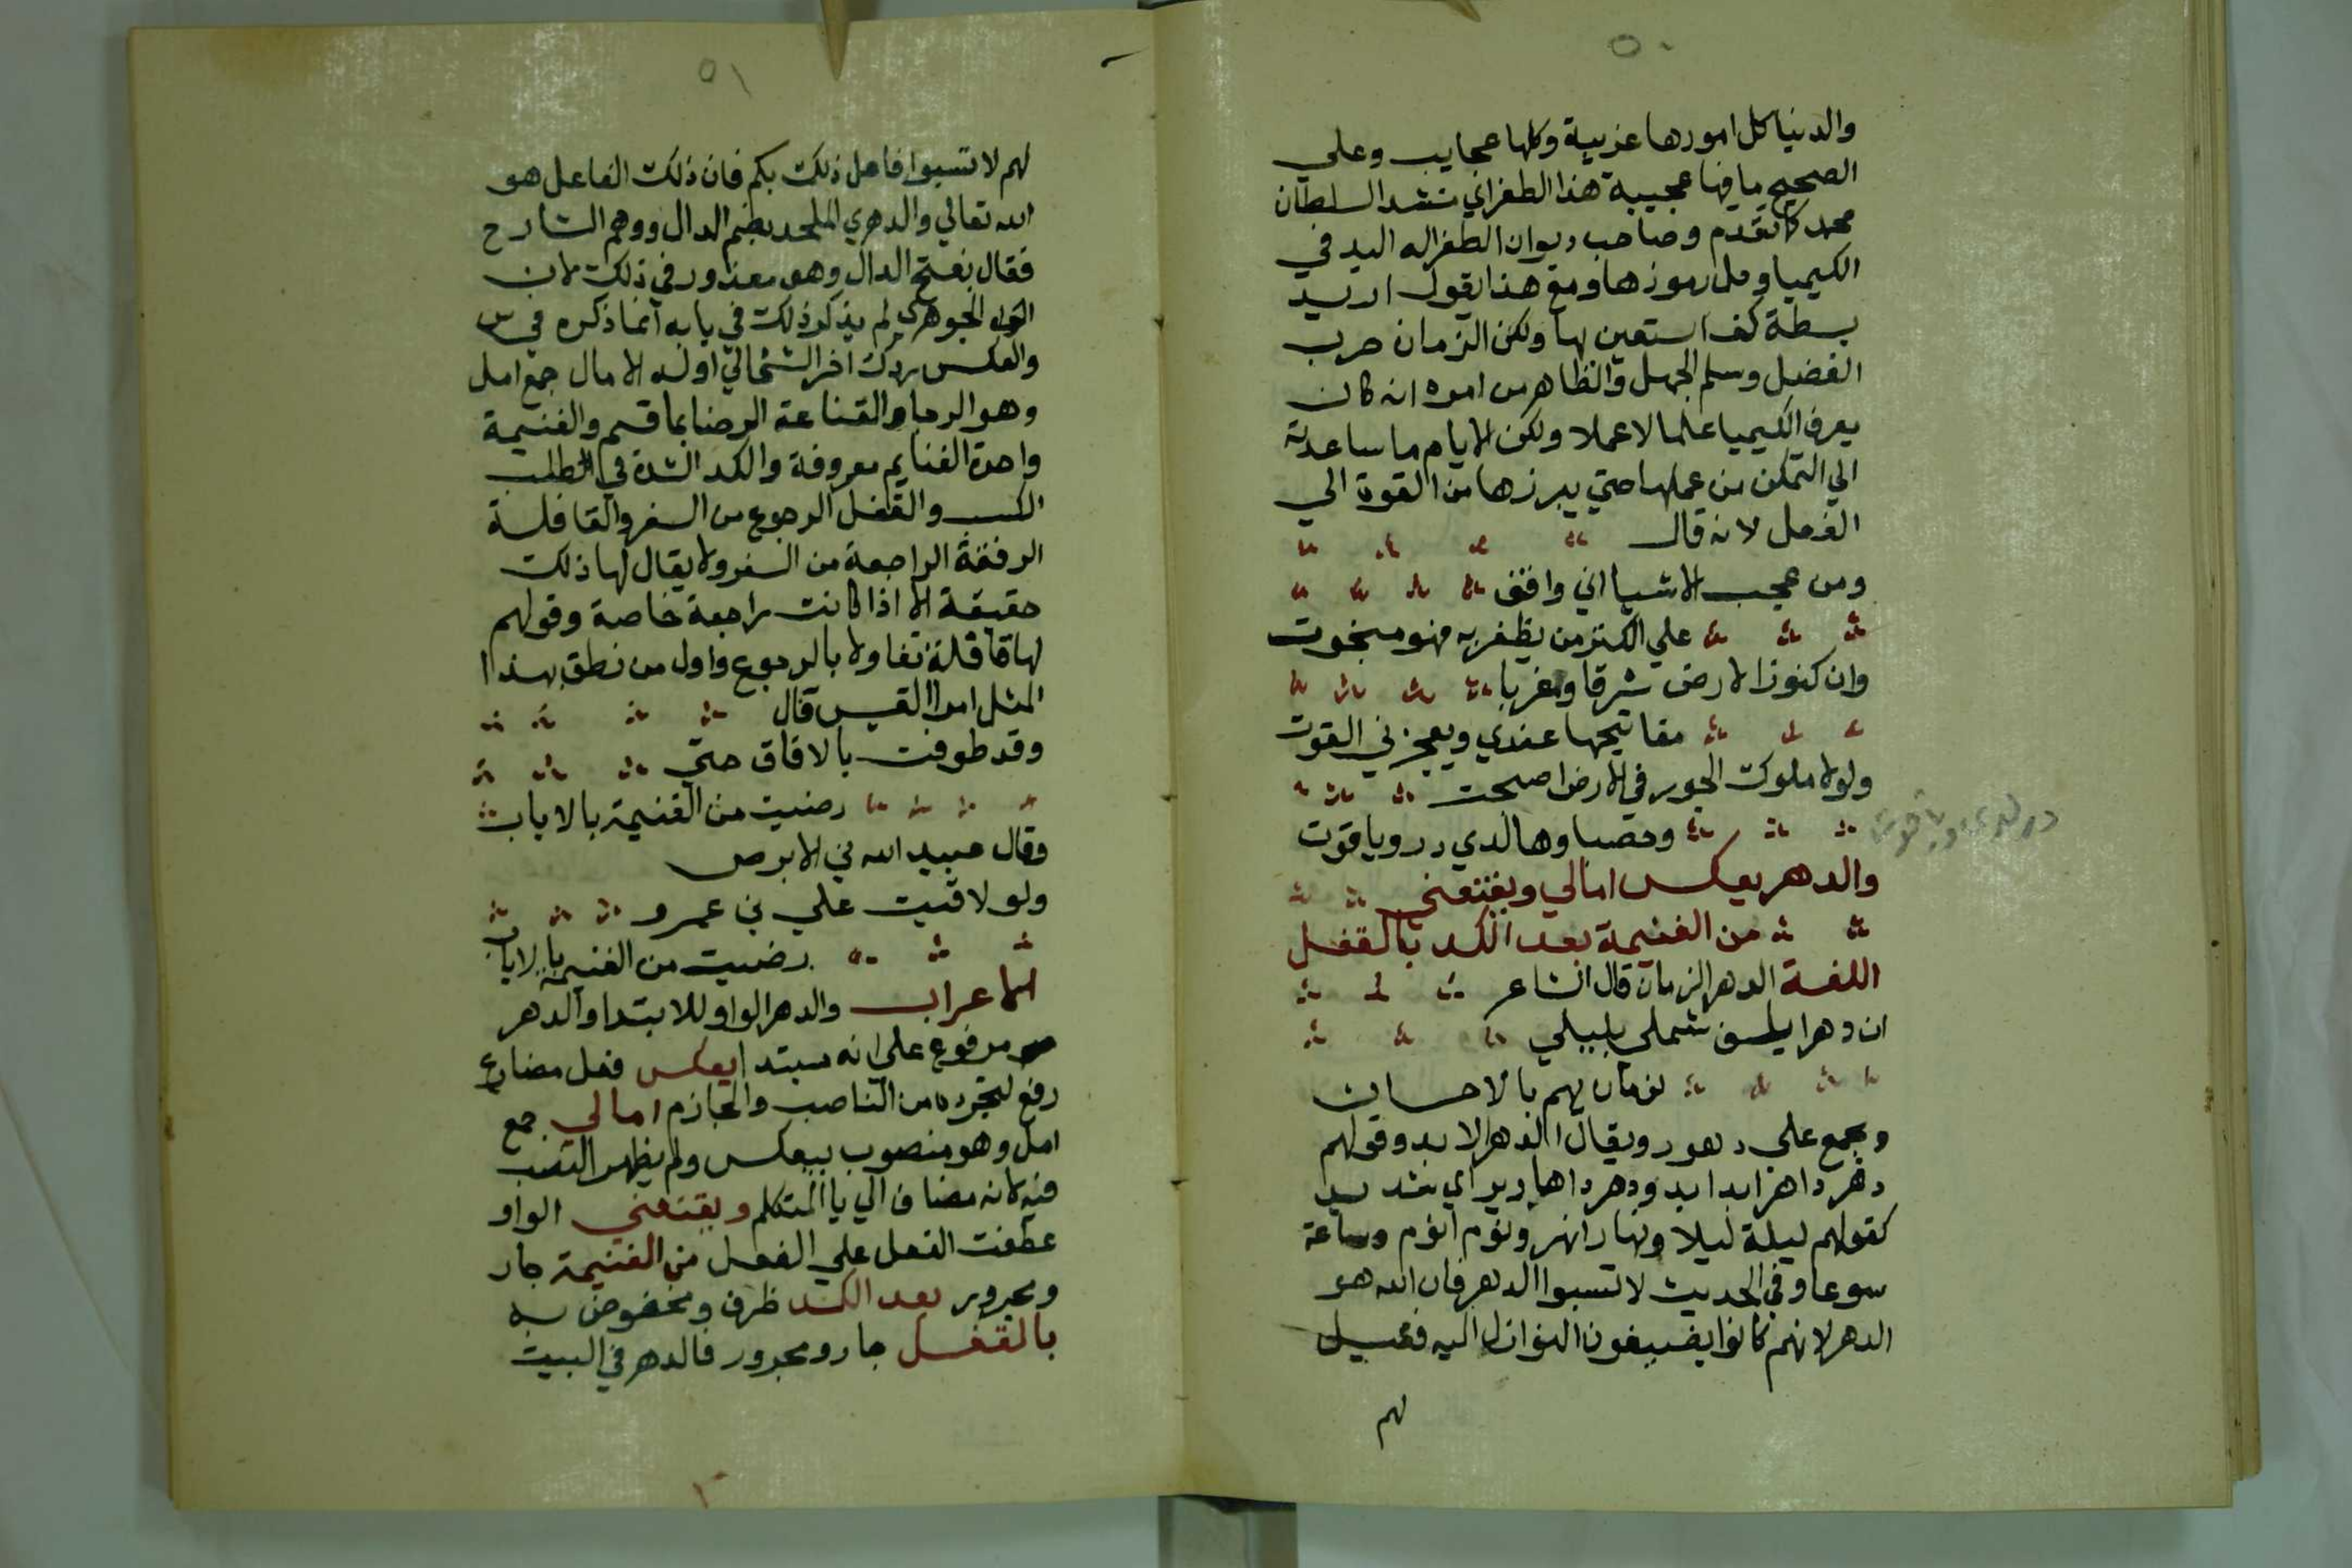 ٥٠
والدنيا كل امورها غريبة وكلها عجايب وعلي
الصحيح ما فيها عجيبة هذا الطغراني منشد السلطان
محمد كما تقدم وصاحب ديوان الطغرا له اليد في
الكيميا وحل رموزها ومع هذا يقول اريد
بسطة كف استعين بها ولكن الزمان حرب
الفضل وسلم الجهل والظاهر من امره انه كان
يعرف الكيميا علما لا عملا ولكن الايام ما ساعدته
الي التمكن من عملها حتي يبرزها من القوة الي
الفعل لانه قال
ومن عجب الاشيا اني واقف
علي الكنز من يظفر به فهو مبخوت
وان كنوز الارض شرقا ومغربا
مفاتيحها عندي ويعجزني القوت
ولولا ملوك الجور في الارض اصبحت
وحصباوها لدي درر وياقوت
والدهر يعكس امالي ويقنعني
من الغنيمة بعد الكد بالقفل
اللغة الدهر الزمان قال الشاعر
ان دهرا يلف شملي بليلي
لزمان يهم بالاحسان
ويجمع علي دهور ويقال الدهر الابد وقولهم
دهر داهر ابدا ابد ودهر دهارير اي شديد
كقولهم ليلة ليلا ونهار انهر ويوم ايوم وساعة
سوعا وفي الحديث لا تسبوا الدهر فان الله هو
الدهر لانهم كانوا يضيفون النوازل اليه فقيل
لهم
٥١
لهم لا تسبوا فاعل ذلك بكم فان ذلك الفاعل هو
الله تعالي والدهري الملحد بضم الدال ووهم الشارح
فقال بفتح الدال وهو معذور في ذلك لان
الجوهري لم يذكر ذلك في بابه انما ذكره في س
والعكس ردك اخر الشي الي اوله الامال جمع امل
وهو الرجا والقناعة الرضا بما قسم والغنيمة
واحدة الغنايم معروفة والكد الشدة في الطلب
الكسب والقفل الرجوع من السفر والقافلة
الرفقة الراجعة من السفر ولا يقال لها ذلك
حقيقة الا اذا كانت راجعة خاصة وقولهم
لها قافلة تفاولا بالرجوع واول من نطق بهذا
المثل امرا القيس قال
وقد طوفت بالافاق حتي
رضيت من الغنيمة بالاياب
وقال عبيد الله بن الابرص
ولو لاقيت علي بن عمرو
رضيت من الغنيمة بالاياب
الاعراب والدهر الواو للابتدا والدهر
مرفوع علي انه مبتدا يعكس فعل مضارع
رفع لتجرده من الناصب والجازم امالي جمع
امل وهو منصوب بيعكس ولم يظهر النصب
فيه لانه مضاف الي يا المتكلم ويقنعني الواو
عطفت الفعل علي الفعل من الغنيمة جار
ومجرور بعد الكد ظرف ومخفوض به
بالقفل جار ومجرور فالدهر في البيت